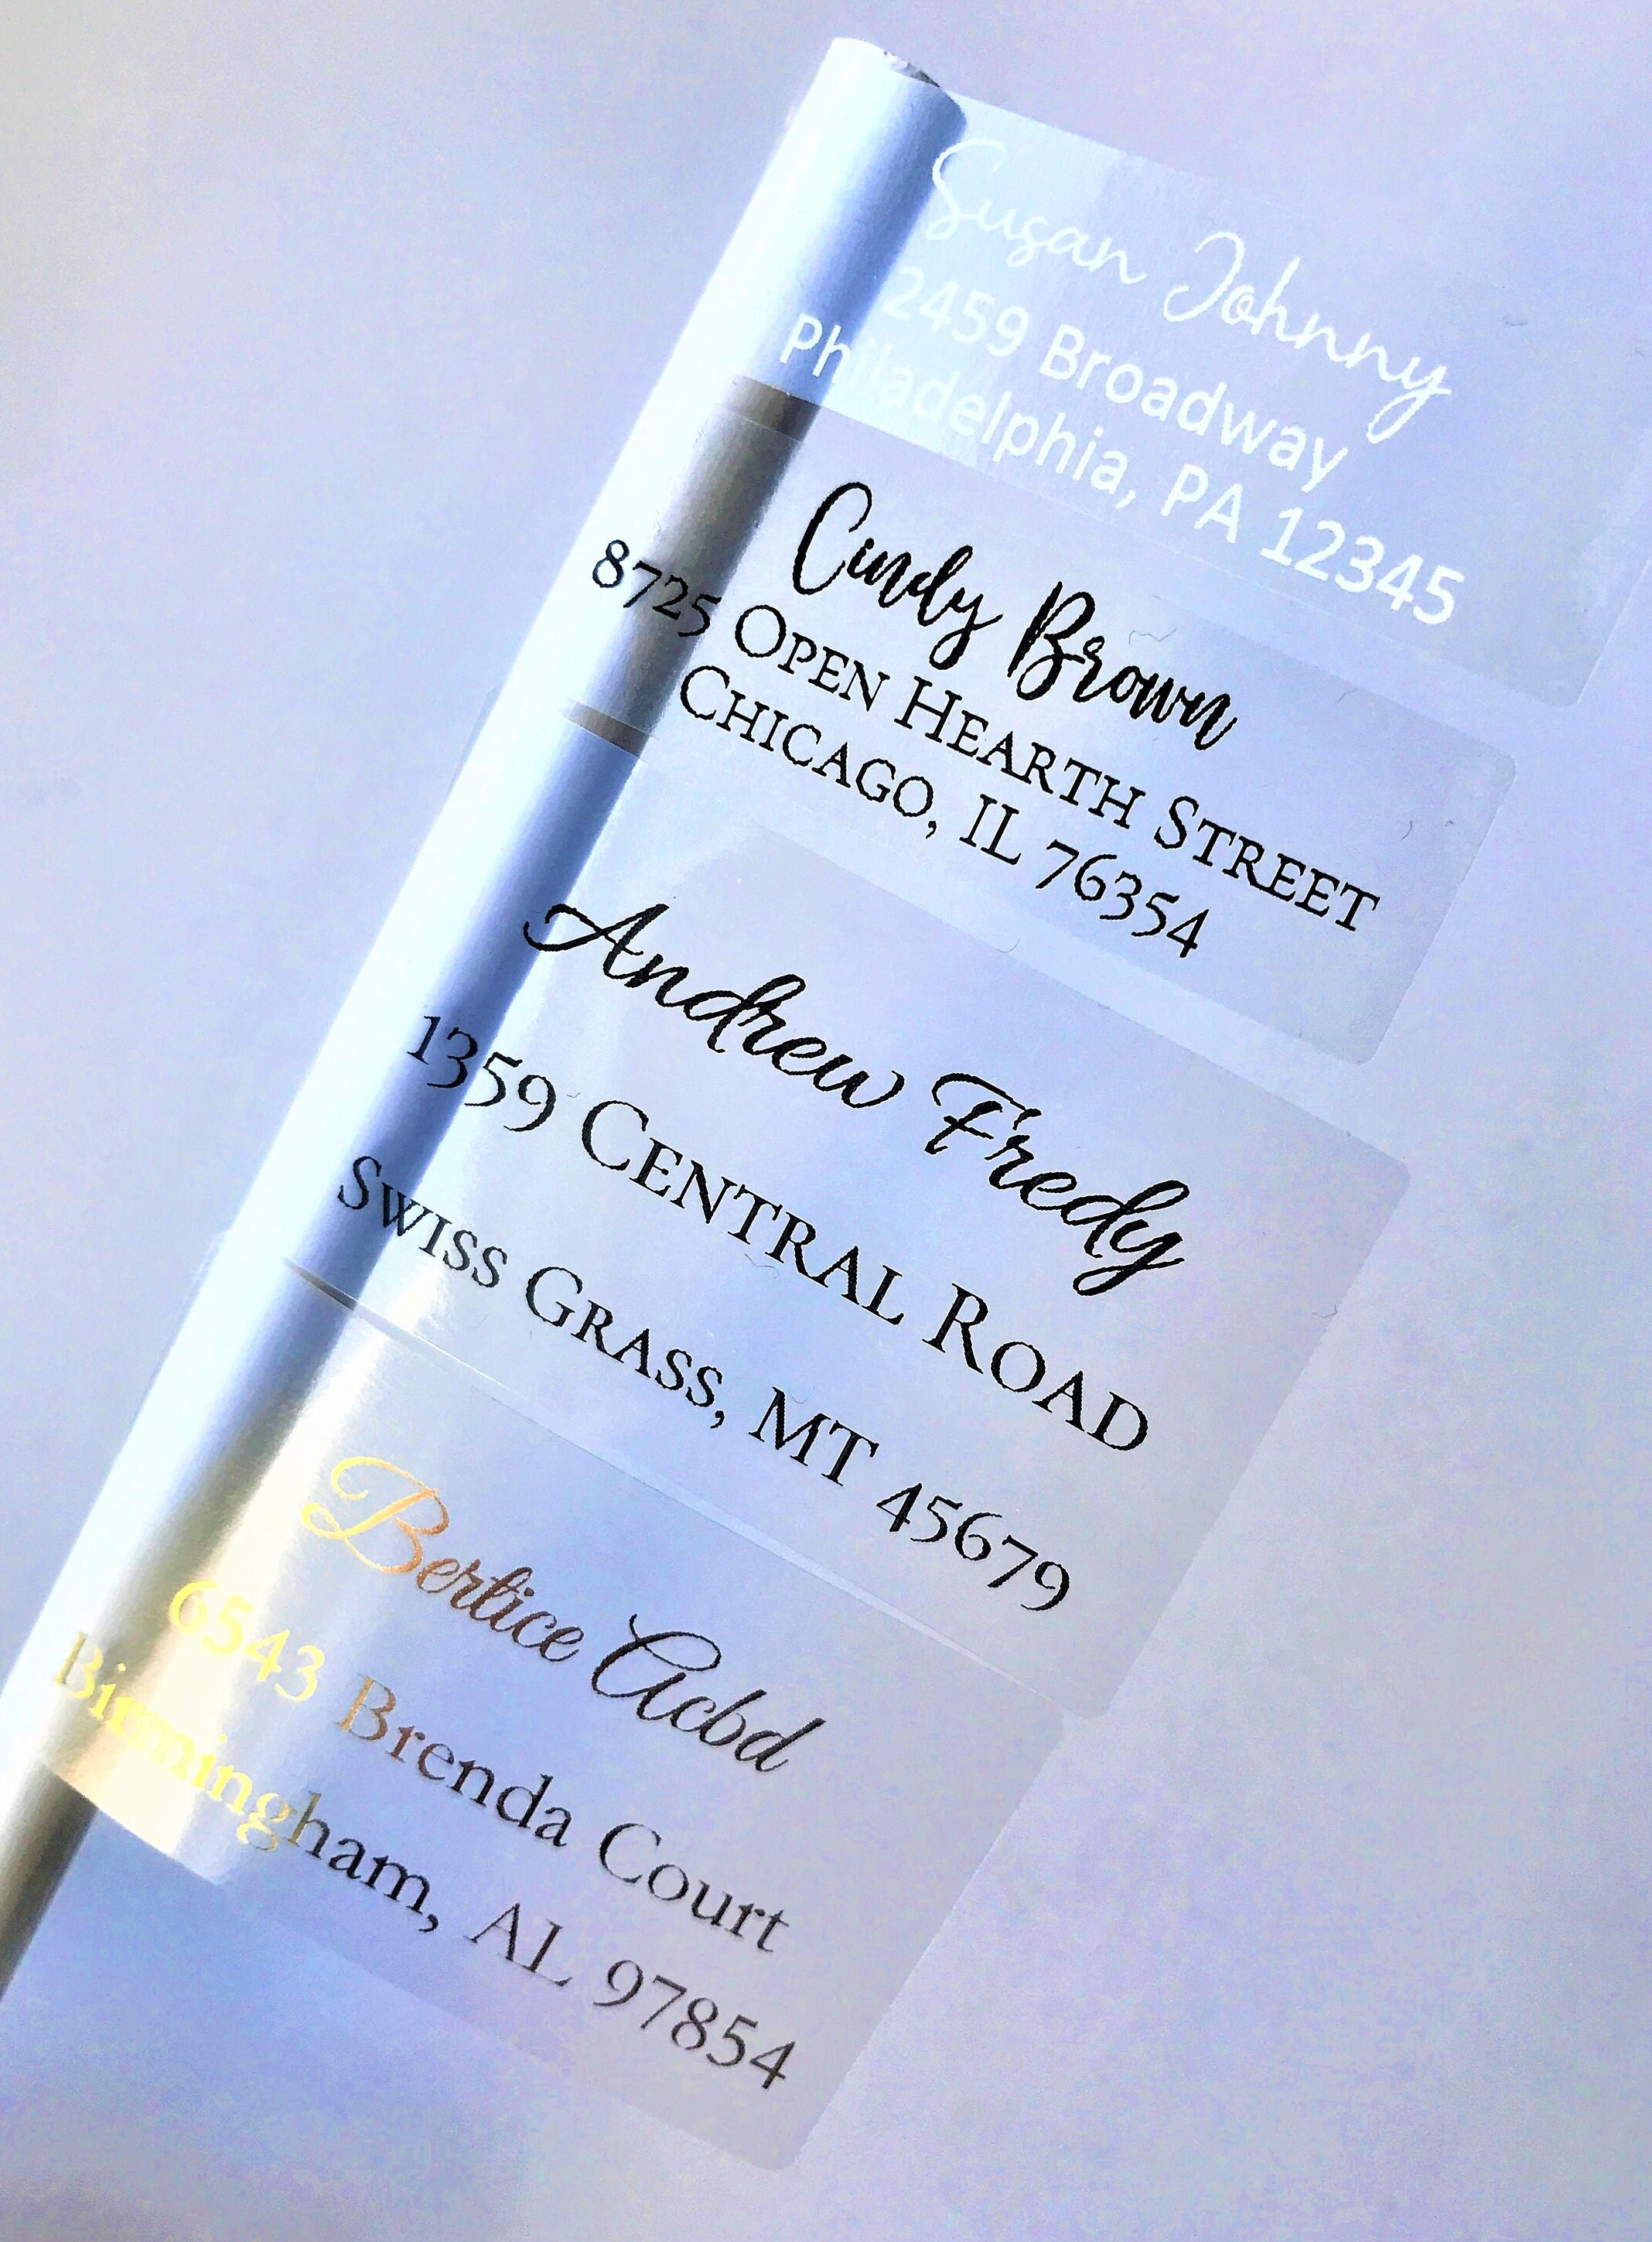 Susan Johnny
2459 Broadway
Philadelphia, PA 12345
Cindy Brown
8725 Open Hearth Street
Chicago, IL 76354
Andrew Fredy
1359 Central Road
Swiss Grass, MT 45679
Bertice Acbd
6543 Brenda Court
Birmingham, AL 97854